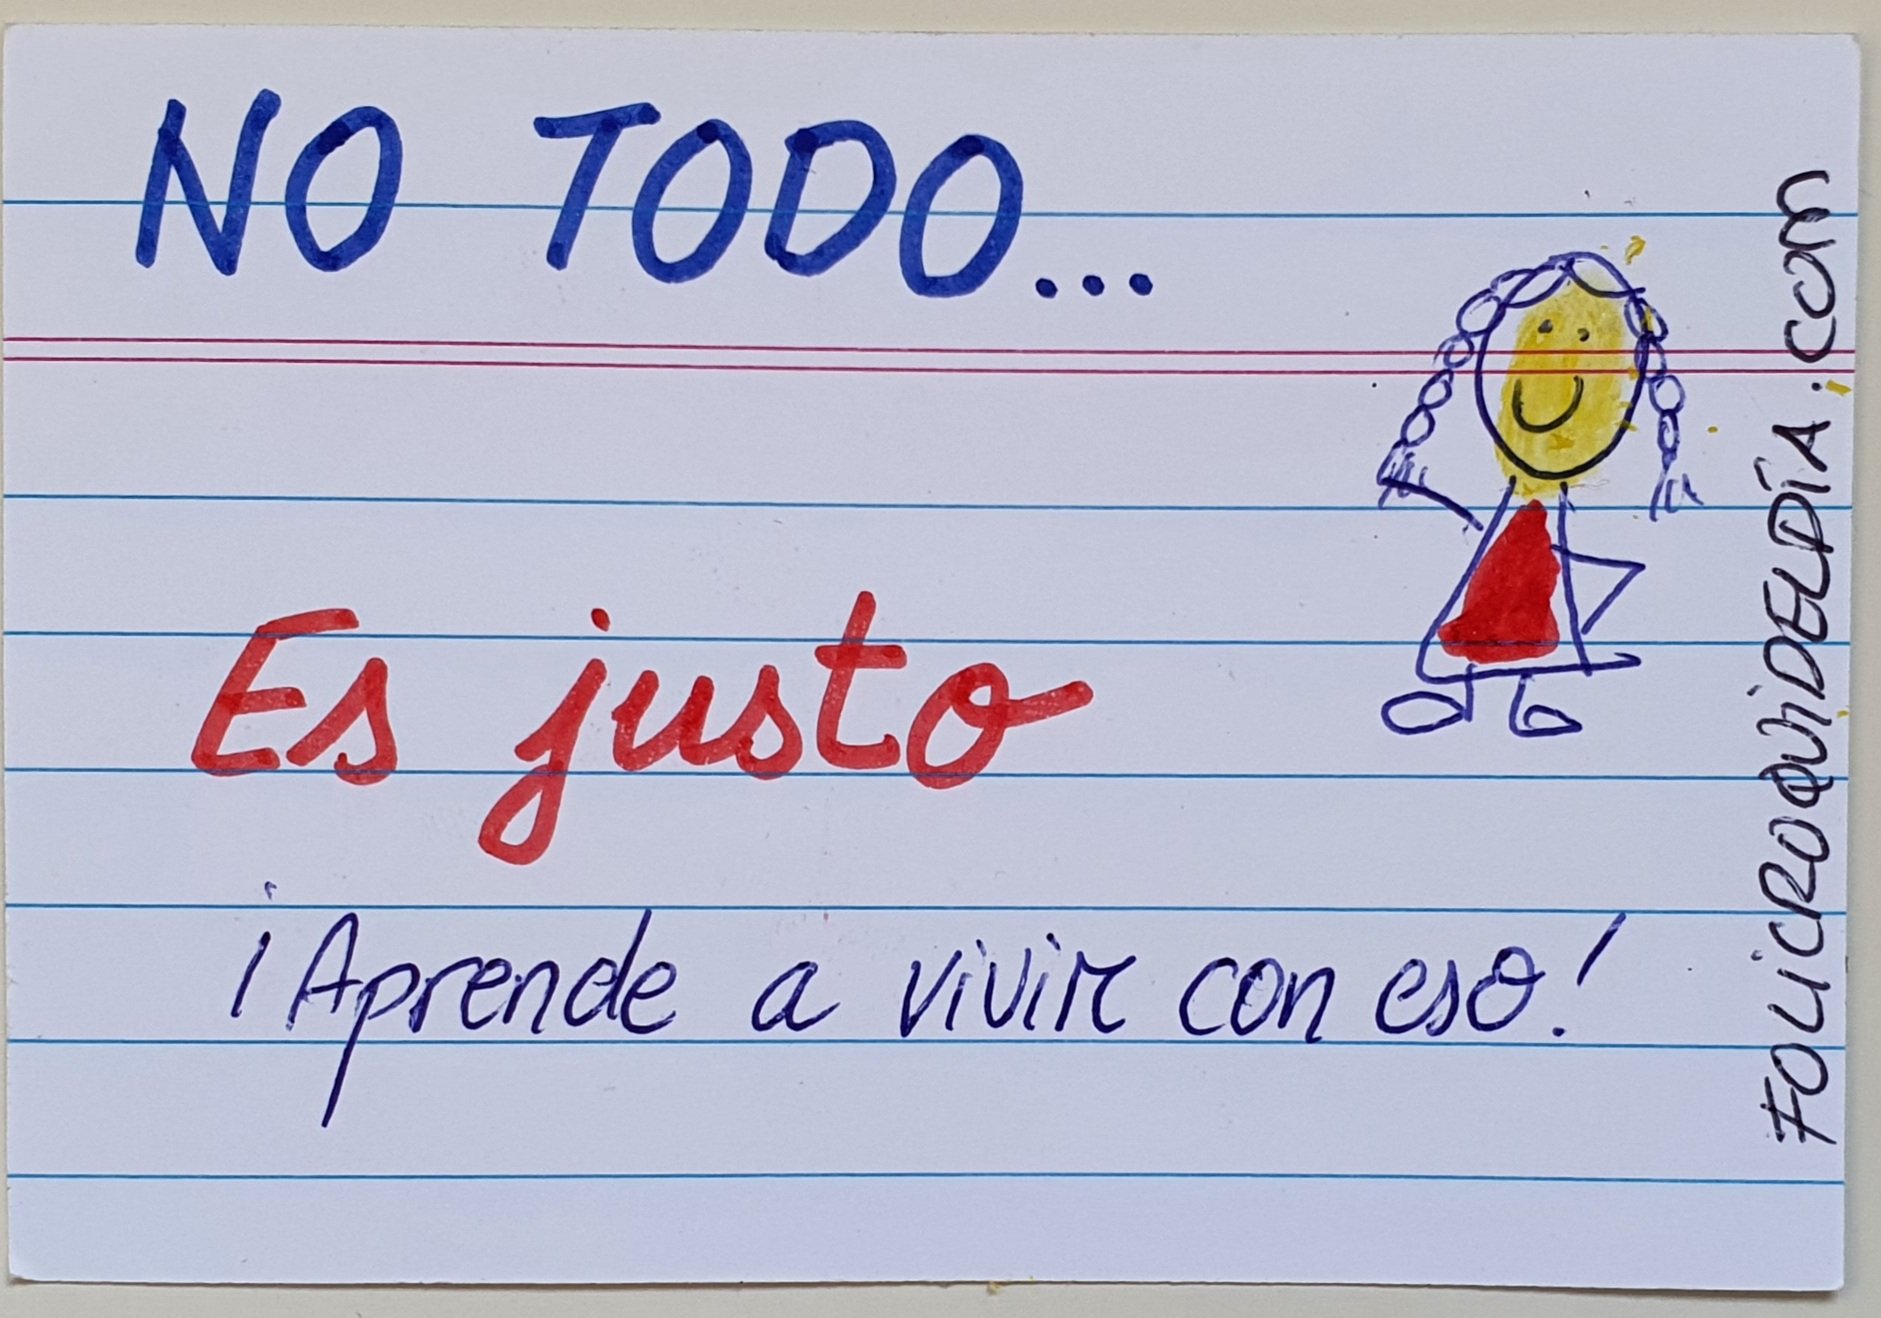 NO TODO...
Es justo
¡Aprende a vivir con eso!
FOLiCROQUiDELDÍA.COM